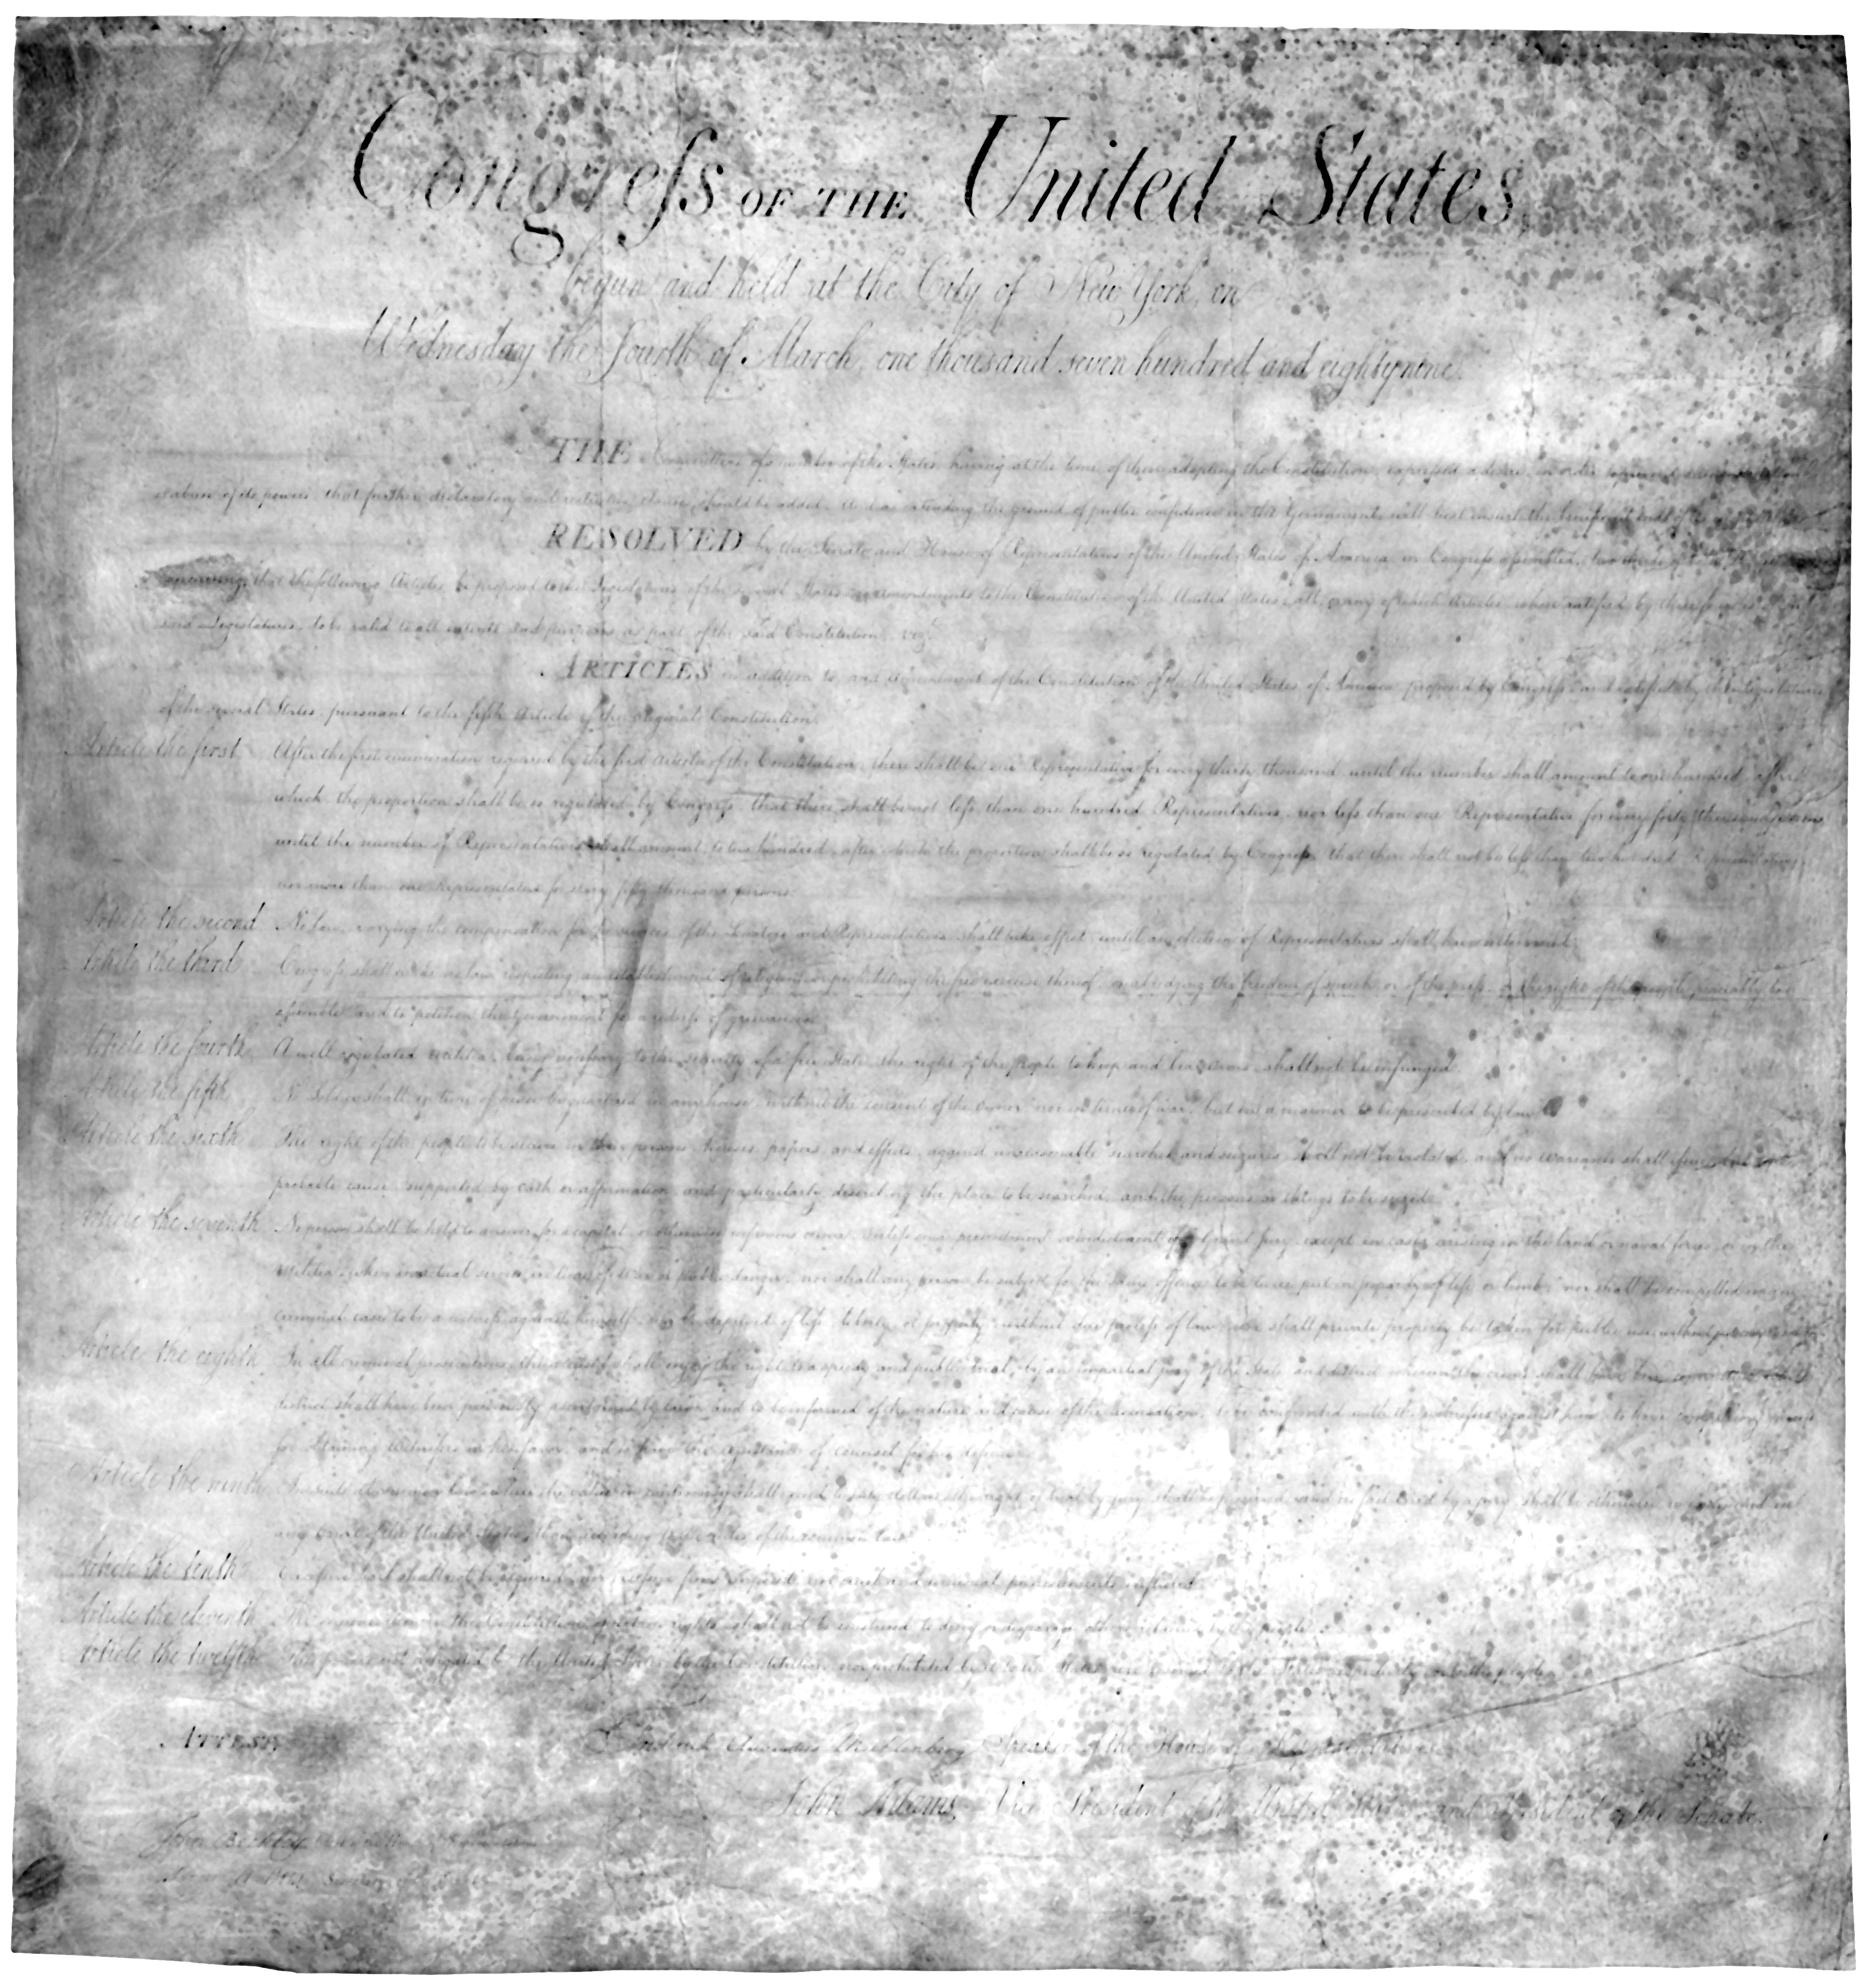 Congress OF THE United States,
begun and held at the City of New York, on
Wednesday the fourth of March, one thousand seven hundred and eighty nine.
THE Conventions of a number of the States, having at the time of their adopting the Constitution, expressed a desire, in order to prevent misconstruction
or abuse of its powers, that further declaratory and restrictive clauses should be added: And as extending the ground of public confidence in the Government, will best ensure the beneficent ends of its
RESOLVED by the Senate and House of Representatives of the United States of America in Congress assembled, two thirds of both Houses
concurring, that the following Articles be proposed to the Legislatures of the several States, as amendments to the Constitution of the United States, all, or any of which Articles, when ratified by three fourths of the
said Legislatures, to be valid to all intents and purposes, as part of the said Constitution; viz.
ARTICLES in addition to, and amendment of the Constitution of the United States of America, proposed by Congress, and ratified by the Legislatures
of the several States, pursuant to the fifth Article of the original Constitution.
Article the first After the first enumeration required by the first Article of the Constitution, there shall be one Representative for every thirty thousand, until the number shall amount to one hundred, after
which, the proportion shall be so regulated by Congress, that there shall be not less than one hundred Representatives, nor less than one Representative for every forty thousand persons,
until the number of Representatives shall amount to two hundred, after which, the proportion shall be so regulated by Congress, that there shall not be less than two hundred Representatives,
nor more than one Representative for every fifty thousand persons.
Article the second No law, varying the compensation for the services of the Senators and Representatives, shall take effect, until an election of Representatives shall have intervened.
Article the third Congress shall make no law respecting an establishment of religion, or prohibiting the free exercise thereof; or abridging the freedom of speech, or of the press; or the right of the people peaceably to
assemble, and to petition the Government for a redress of grievances.
Article the fourth A well regulated militia, being necessary to the security of a free State, the right of the people to keep and bear arms, shall not be infringed.
Article the fifth No Soldier shall, in time of peace be quartered in any house, without the consent of the owner, nor in time of war, but in a manner to be prescribed by law.
Article the sixth The right of the people to be secure in their persons, houses, papers, and effects, against unreasonable searches and seizures, shall not be violated, and no warrants shall issue, but upon
probable cause, supported by oath or affirmation, and particularly describing the place to be searched, and the persons or things to be seized.
Article the seventh No person shall be held to answer for a capital, or otherwise infamous crime, unless on a presentment or indictment of a Grand Jury, except in cases arising in the land or naval forces, or in the
Militia, when in actual service in time of War or public danger; nor shall any person be subject for the same offence to be twice put in jeopardy of life or limb; nor shall be compelled in any
criminal case to be a witness against himself, nor be deprived of life, liberty, or property, without due process of law; nor shall private property be taken for public use without just
Article the eighth In all criminal prosecutions, the accused shall enjoy the right to a speedy and public trial, by an impartial jury of the State and district wherein the crime shall have been committed, which
district shall have been previously ascertained by law, and to be informed of the nature and cause of the accusation; to be confronted with the witnesses against him; to have compulsory process
for obtaining witnesses in his favor, and to have the assistance of counsel for his defence.
Article the ninth In suits at common law, where the value in controversy shall exceed twenty dollars, the right of trial by jury shall be preserved, and no fact tried by a jury, shall be otherwise re-examined in
any Court of the United States, than according to the rules of the common law.
Article the tenth Excessive bail shall not be required, nor excessive fines imposed, nor cruel and unusual punishments inflicted.
Article the eleventh The enumeration in the Constitution, of certain rights, shall not be construed to deny or disparage others retained by the people.
Article the twelfth The powers not delegated to the United States by the Constitution, nor prohibited by it to the States, are reserved to the States respectively, or to the people.
ATTEST,
Frederick Augustus Muhlenberg Speaker of the House of Representatives
John Adams, Vice President of the United States, and President of the Senate.
John Beckley,